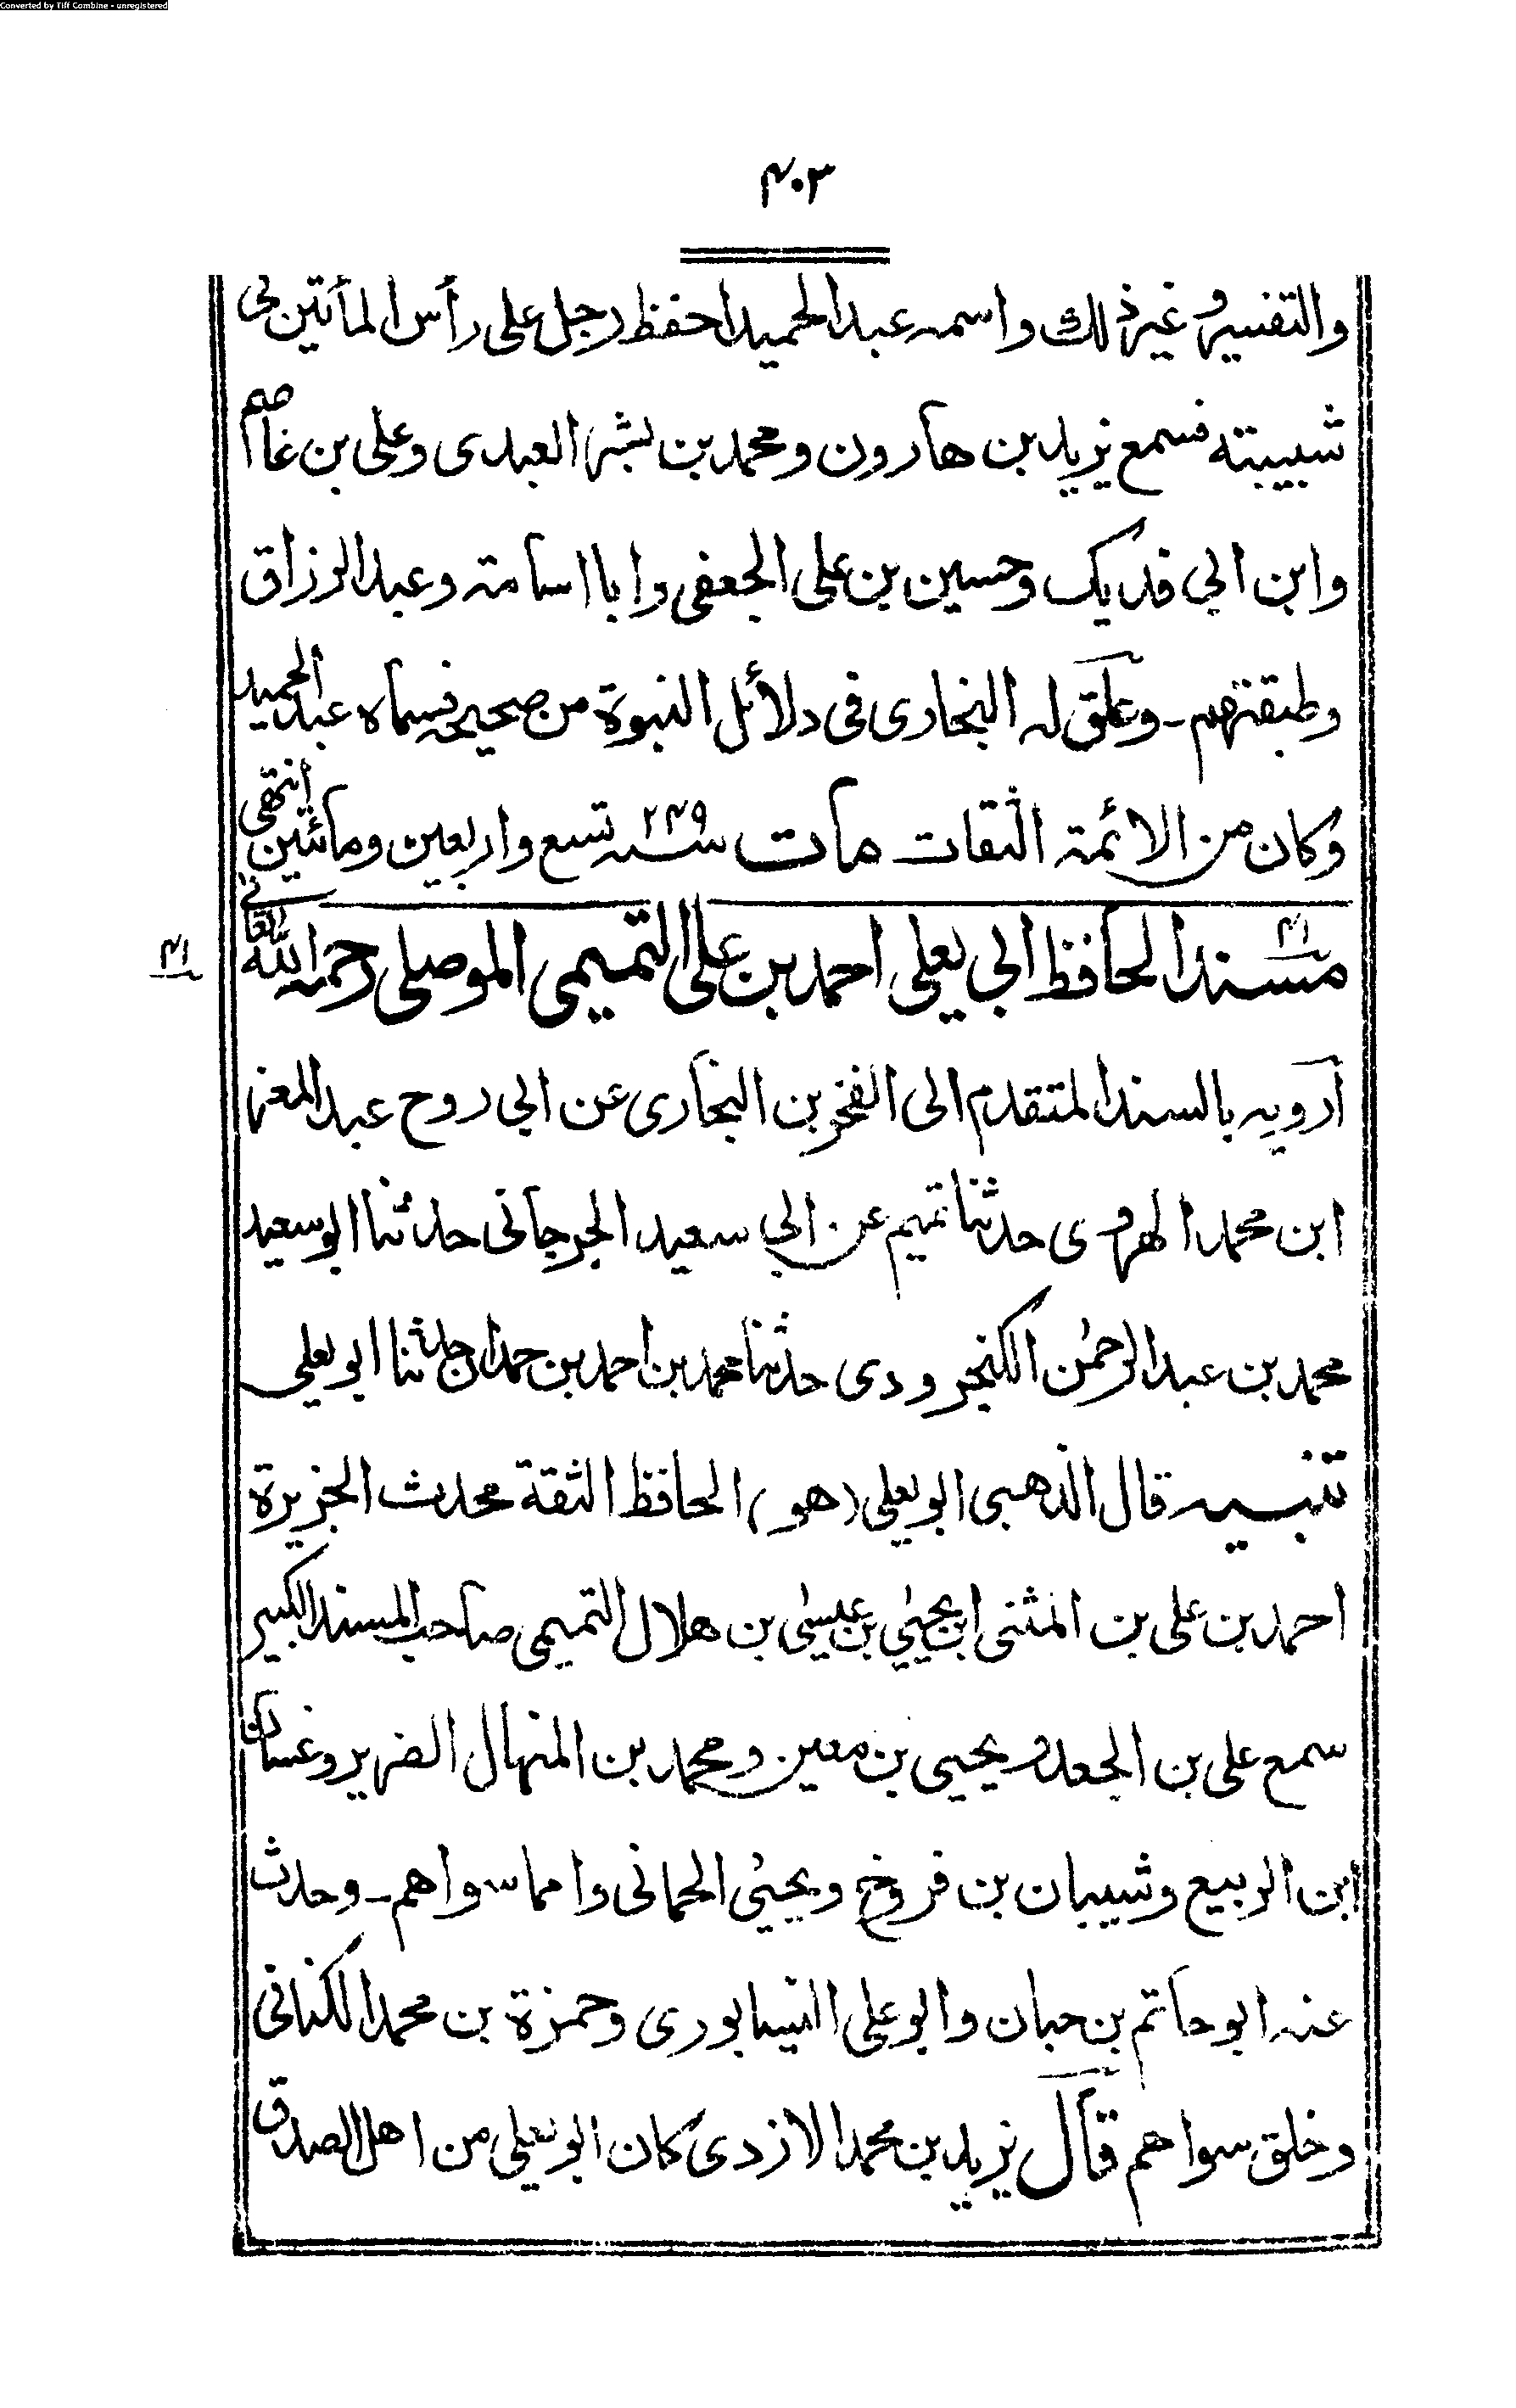 Converted by Tiff Combine - unregistered
۴۰۳
والتفسير وغير ذلك واسمه عبد الحميد احفظ رجل على رأس المأتين فى
شبيبته فسمع يزيد بن هارون ومحمد بن بشر العبدى وعلى بن عاصم
وابن ابي فديك وحسين بن على الجعفى وابا اسامة وعبد الرزاق
وطبقتهم ـ وعلق له البخارى فى دلائل النبوة من صحيحه فسماه عبد الحميد
وكان من الائمة الثقات مات سنه ۲۴۹ تسع واربعين ومائتين انتهى
۴۱ مسند الحافظ ابي يعلى احمد بن على التميمى الموصلى رحمه الله تعالى
۴۱
أرويه بالسند المتقدم الى الفخر بن البخارى عن ابي روح عبد المعز
ابن محمد الهروى حدثنا تميم عن ابي سعيد الجرجانى حدثنا ابو سعيد
محمد بن عبد الرحمٰن الكنجرودى حدثنا محمد بن احمد بن حمدان حدثنا ابو يعلى
تنبيه قال الذهبى ابو يعلى (هو) الحافظ الثقة محدث الجزيرة
احمد بن على بن المثنى ابن يحيىٰ بن عيسىٰ بن هلال التميمى صاحب المسند الكبير
سمع على بن الجعد ويحيى بن معين ومحمد بن المنهال الضرير وغسان
ابن الربيع وشيبان بن فروخ ويحيىٰ الحمانى وامما سواهم ـ وحدث
عنه ابو حاتم بن حبان وابو على النيسابورى وحمزة بن محمد الكنانى
وخلق سواهم قال يزيد بن محمد الازدى كان ابو يعلى من اهل الصدق